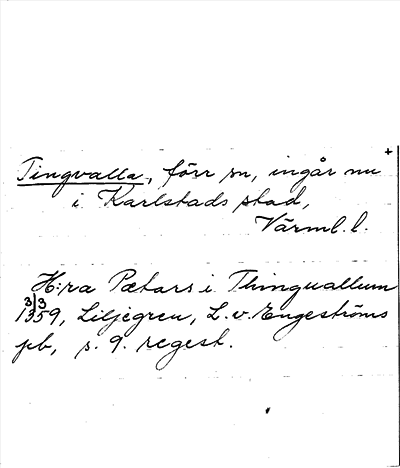 +
Tingvalla, förr sn, ingår nu
i Karlstads stad,
Värml. l.
H:ra Pætars i Thinguallum
3/3
1359, Liljegren, L. v. Engeströms
pb, s. 9. regest.